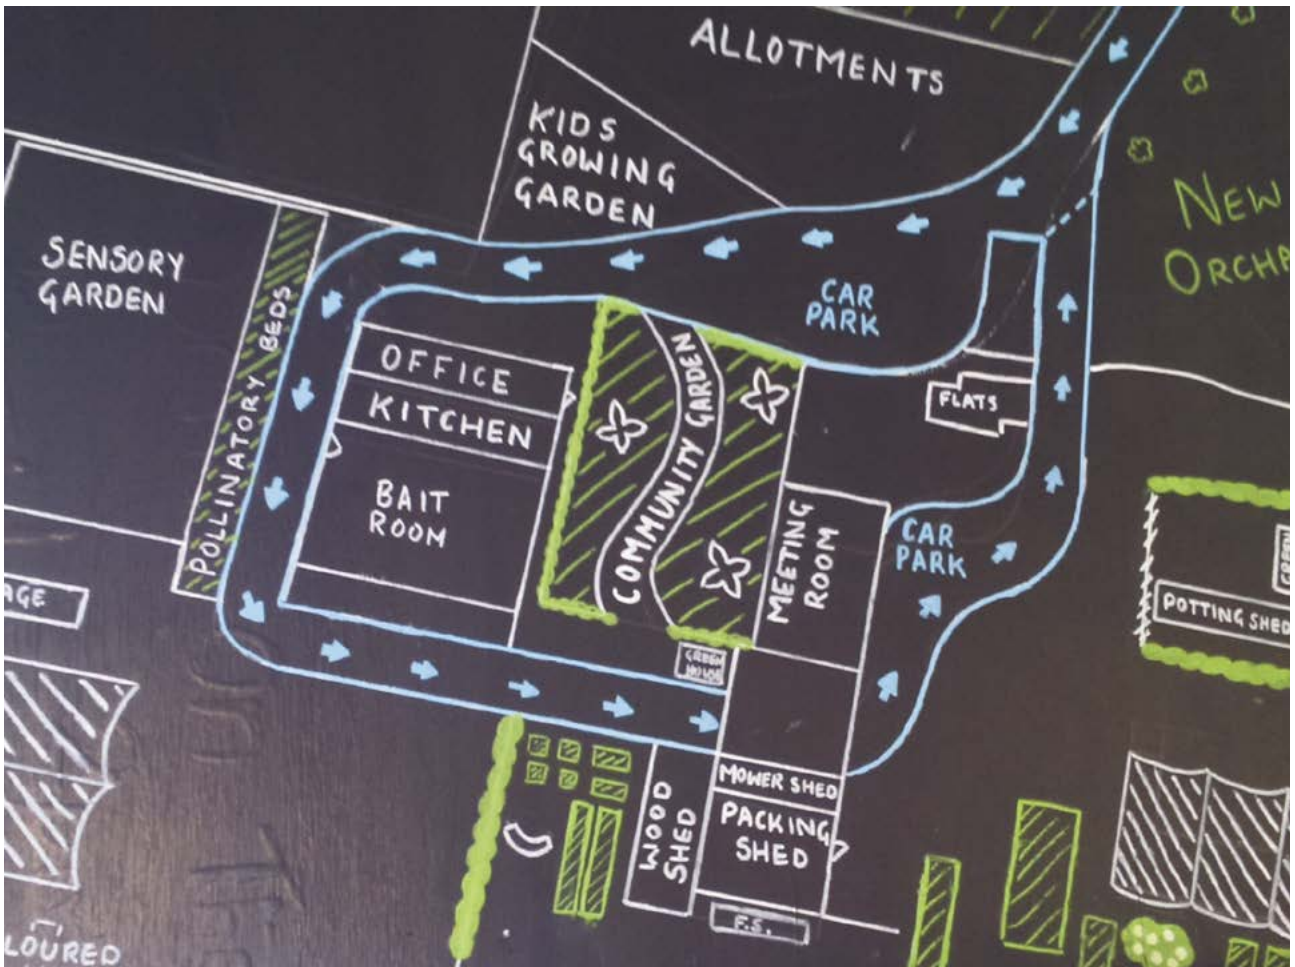 ALLOTMENTS
KIDS
GROWING
GARDEN
NEW
SENSORY
GARDEN
POLLINATORY BEDS
CAR
PARK
OFFICE
KITCHEN
BAIT
ROOM
COMMUNITY GARDEN
FLATS
MEETING
ROOM
CAR
PARK
GREEN
POTTING SHED
GREEN
HOUSE
MOWER SHED
WOOD
SHED
PACKING
SHED
F.S.